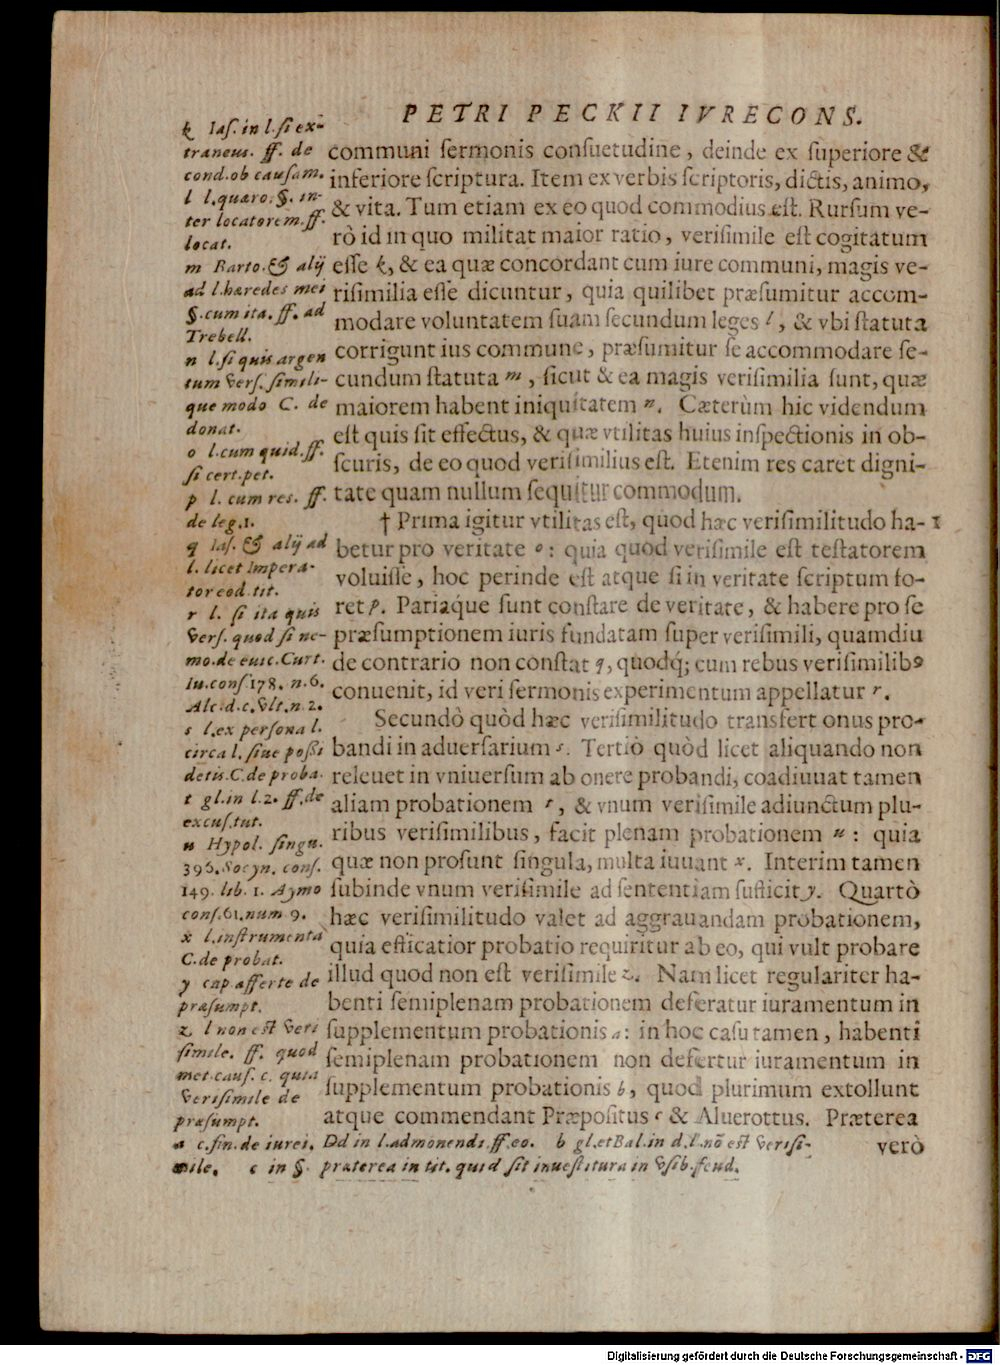 PETRI PECKII IVRECONS.
communi sermonis consuetudine, deinde ex superiore &
inferiore scriptura. Item ex verbis scriptoris, dictis, animo,
& vita. Tum etiam ex eo quod commodius est. Rursum ve-
rò id in quo militat maior ratio, verisimile est cogitatum
esse k, & ea quæ concordant cum iure communi, magis ve-
risimilia esse dicuntur, quia quilibet præsumitur accom-
modare voluntatem suam secundum leges l, & vbi statuta
corrigunt ius commune, præsumitur se accommodare se-
cundum statuta m, sicut & ea magis verisimilia sunt, quæ
maiorem habent iniquitatem n. Cæterùm hic videndum
est quis sit effectus, & quæ vtilitas huius inspectionis in ob-
scuris, de eo quod verisimilius est. Etenim res caret digni-
tate quam nullum sequitur commodum.
† Prima igitur vtilitas est, quod hæc verisimilitudo ha- 1
betur pro veritate o: quia quod verisimile est testatorem
voluisse, hoc perinde est atque si in veritate scriptum fo-
ret p. Pariaque sunt constare de veritate, & habere pro se
præsumptionem iuris fundatam super verisimili, quamdiu
de contrario non constat q, quodq; cum rebus verisimilibꝰ
conuenit, id veri sermonis experimentum appellatur r.
Secundò quòd hæc verisimilitudo transfert onus pro-
bandi in aduersarium s. Tertiò quòd licet aliquando non
releuet in vniuersum ab onere probandi, coadiuuat tamen
aliam probationem t, & vnum verisimile adiunctum plu-
ribus verisimilibus, facit plenam probationem u: quia
quæ non prosunt singula, multa iuuant x. Interim tamen
subinde vnum verisimile ad sententiam sufficit y. Quartò
hæc verisimilitudo valet ad aggrauandam probationem,
quia efficatior probatio requiritur ab eo, qui vult probare
illud quod non est verisimile z. Nam licet regulariter ha-
benti semiplenam probationem deferatur iuramentum in
supplementum probationis a: in hoc casu tamen, habenti
semiplenam probationem non defertur iuramentum in
supplementum probationis b, quod plurimum extollunt
atque commendant Præpositus c & Aluerottus. Præterea
verò
k Ias. in l. si ex-
traneus. ff. de
cond. ob causam.
l l. quæro. §. in-
ter locatorem. ff.
locat.
m Barto. & alij
ad l. hæredes mei
§. cum ita. ff. ad
Trebell.
n l. si quis argen
tum vers. simili-
que modo C. de
donat.
o l. cum quid. ff.
si cert. pet.
p l. cum res. ff.
de leg. 1.
q Ias. & alij ad
l. licet Impera-
tor eod. tit.
r l. si ita quis
vers. quod si ne-
mo. de euic. Curt.
Iu. cons. 178. n. 6.
Alc. d. c. vlt. n. 2.
s l. ex persona l.
circa l. siue possi
detis. C. de proba.
t gl. in l. 2. ff. de
excus. tut.
u Hypol. singu.
396. Socyn. cons.
149. lib. 1. Aymo
cons. 61. num 9.
x l. instrumenta
C. de probat.
y cap. afferte de
præsumpt.
z l non est veri
simile. ff. quod
met. caus. c. quia
verisimile de
præsumpt.
a c. fin. de iurei. Dd in l. admonendi. ff. eo. b gl. et Bal. in d. l. nõ est verisi-
mile. c in §. præterea in tit. quid sit inuestitura in vsib. feud.
Digitalisierung gefördert durch die Deutsche Forschungsgemeinschaft - DFG